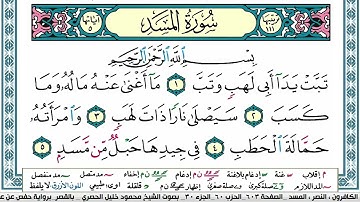 سُورَةُ المَسَدِ
بِسْمِ اللَّهِ الرَّحْمَٰنِ الرَّحِيمِ
تَبَّتْ يَدَا أَبِي لَهَبٍ وَتَبَّ ١ مَا أَغْنَىٰ عَنْهُ مَالُهُ وَمَا
كَسَبَ ٢ سَيَصْلَىٰ نَارًا ذَاتَ لَهَبٍ ٣ وَامْرَأَتُهُ
حَمَّالَةَ الْحَطَبِ ٤ فِي جِيدِهَا حَبْلٌ مِّن مَّسَدٍ ٥
الكافرون ، النصر ، المسد الصفحة ٦٠٣ الحزب ٦٠ الجزء ٣٠ بصوت الشيخ محمود خليل الحصري